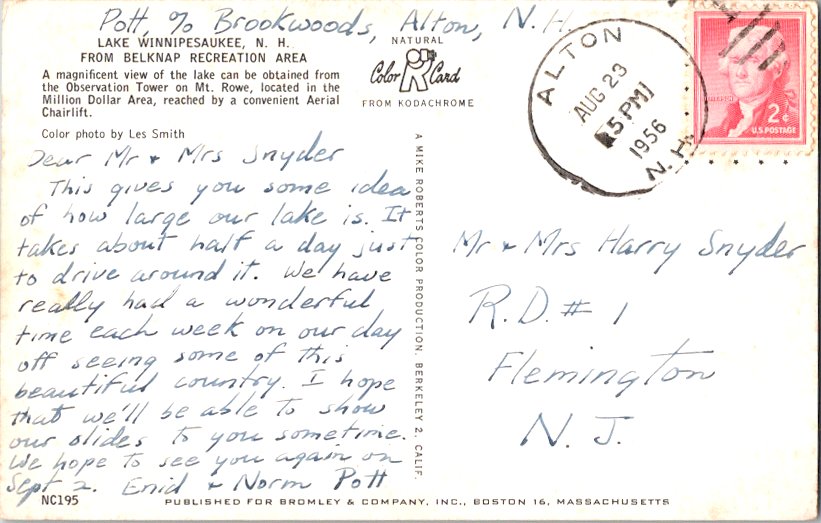 Pott, % Brookwoods, Alton, N. H.
LAKE WINNIPESAUKEE, N. H.
FROM BELKNAP RECREATION AREA
A magnificent view of the lake can be obtained from
the Observation Tower on Mt. Rowe, located in the
Million Dollar Area, reached by a convenient Aerial
Chairlift.
Color photo by Les Smith
NATURAL
Color R Card
FROM KODACHROME
ALTON
AUG 23
5 PM
1956
N.H.
2¢
U.S. POSTAGE
Dear Mr + Mrs Snyder
This gives you some idea
of how large our lake is. It
takes about half a day just
to drive around it. We have
really had a wonderful
time each week on our day
off seeing some of this
beautiful country. I hope
that we'll be able to show
our slides to you sometime.
We hope to see you again on
Sept 2. Enid + Norm Pott
A MIKE ROBERTS COLOR PRODUCTION, BERKELEY 2, CALIF.
Mr + Mrs Harry Snyder
R.D. # 1
Flemington
N. J.
NC195
PUBLISHED FOR BROMLEY & COMPANY, INC., BOSTON 16, MASSACHUSETTS